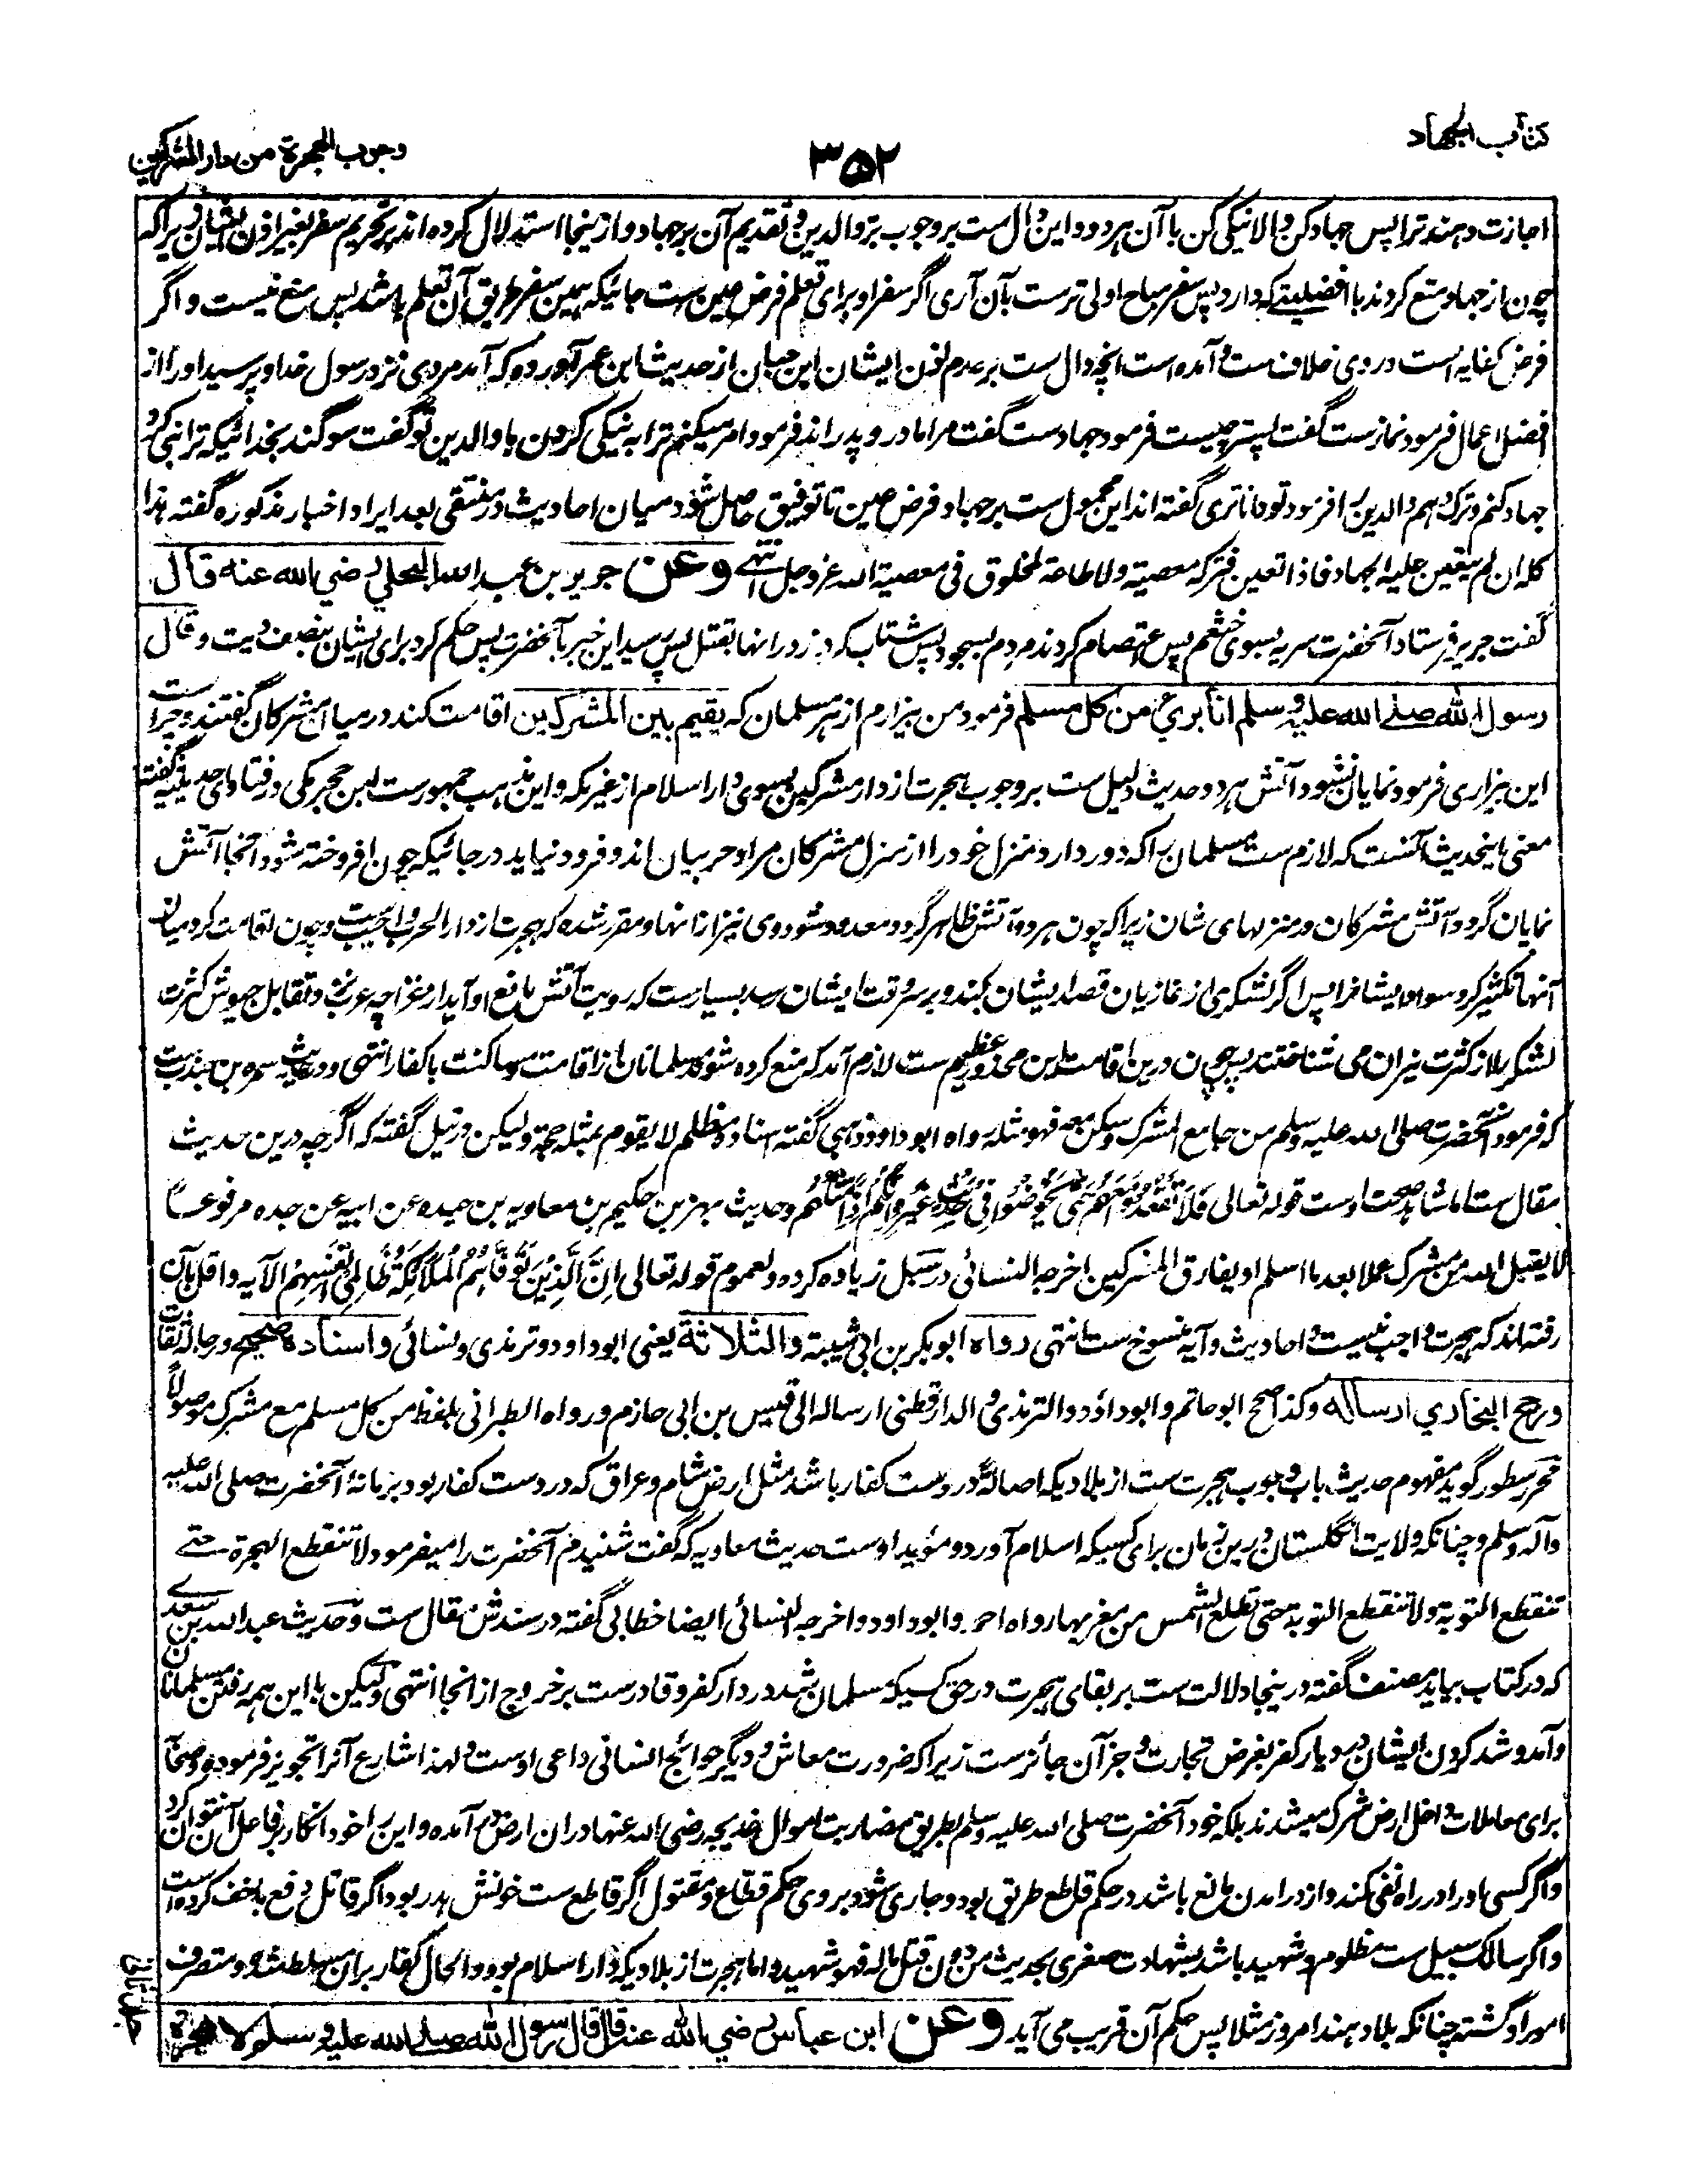 کتاب الجهاد
۳۵۲
وجوب الهجرة من دار المشرکین
اجازت دهند ترا پس جهاد کن والا نیکی کن با آن هر دو و این دال ست بر وجوب بر والدین و تقدیم آن بر جهاد و ازینجا استدلال کرده اند بر تحریم سفر بغیر اذن ایشان زیراکه
چون از جهاد منع کردند با افضلیتے که دارد پس سفر مباح اولی ترست بآن آری اگر سفر او برای تعلم فرض عین ست جائیکه همین سفر طریق آن تعلم باشد پس منع نیست و اگر
فرض کفایه است در وی خلاف ست و آمده است انچه دال ست بر عدم اذن ایشان ابن حبان از حدیث ابن عمر آورده که آمد مردی نزد رسول خدا و پرسید او را از
افضل اعمال فرمود نمازست گفت پستر چیست فرمود جهادست گفت مرا مادر و پدر اند فرمود امر میکنم ترا به نیکی کردن با والدین تو گفت سوگند بخدائیکه ترا نبی کرد
جهاد کنم و ترک دهم والدین را فرمود تو داناتری گفته اند این محمول ست بر جهاد فرض عین تا توفیق حاصل شود میان احادیث و در منتقی بعد ایراد اخبار مذکوره گفته هذا
کله ان لم یتعین علیه الجهاد فاذا تعین فترکه معصیة ولا طاعة لمخلوق فی معصیة الله عز وجل انتهے وعن جریر بن عبد الله البجلي رضي الله عنه قال
گفت جریر فرستاد آنحضرت سریه بسوی خثعم پس اعتصام کردند مردم بسجود پس شتاب کرده زد رانها بقتل پس رسید این خبر بآنحضرت پس حکم کرد برای ایشان بنصف دیت وقال
رسول الله صلے الله علیه وسلم انا بريء من کل مسلم فرمود من بیزارم از هر مسلمان که یقیم بین المشرکین اقامت کند در میان مشرکان گفتند و چراست
این بیزاری فرمود نمایان نشود آتش هر دو و حدیث دلیل ست بر وجوب هجرت از دار مشرکین بسوی دار اسلام از غیر مکه و این مذهب جمهورست ابن حجر مکی در فتاوای حدیثیه گفته
معنی اینحدیث آنست که لازم ست مسلمان را که دور دارد منزل خود را از منزل مشرکان مراد حربیان اند و فرود نیاید در جائیکه چون افروخته شود آنجا آتش
نمایان گردد آتش مشرکان در منزلهای شان زیراکه چون هر دو آتش ظاهر گردد معدود شود وی نیز از انها و مقرر شده که هجرت از دار الحرب واجب ست و چون اقامت کرد میان
آنها تکثیر کرد سواد ایشانرا پس اگر لشکری از غازیان قصد ایشان بکند و بر سر وقت ایشان رسد بسیارست که رویت آتش مانع او آید از غزا چه عرب نزد تقابل جیوش کثرت
لشکر را از کثرت نیران می شناختند پس چون درین اقامت این محذور عظیم ست لازم آمد که منع کرده شود مسلمانان از اقامت و مساکنت با کفار انتهی و در حدیث سمره بن جندب ست
که فرمود آنحضرت صلی الله علیه وسلم من جامع المشرک وسکن معه فهو مثله رواه ابو داود ذهبی گفته اسناده مظلم لا یقوم بمثله حجة ولیکن در نیل گفته که اگرچه درین حدیث
مقال ست اما شاهد صحت اوست قوله تعالی فَلَا تَقْعُدُوا مَعَهُمْ حَتّٰی یَخُوضُوا فِی حَدِیثٍ غَیْرِهِ اِنَّکُمْ اِذًا مِّثْلُهُمْ و حدیث بهز بن حکیم بن معاویه بن حیده عن ابیه عن جده مرفوعا
لا یقبل الله من مشرک عملا بعد ما اسلم او یفارق المشرکین اخرجه النسائی در سبل زیاده کرده ولعموم قوله تعالی اِنَّ الَّذِیْنَ تَوَفَّاهُمُ الْمَلَائِکَةُ ظَالِمِی اَنْفُسِهِمْ الآیه و اقل بآن
رفته اند که هجرت واجب نیست و احادیث و آیه منسوخ ست انتهی رواه ابو بکر بن ابی شیبة والثلاثة یعنی ابو داود و ترمذی و نسائی واسناده صحیح ورجاله ثقات
ورجح البخاري ارساله وکذا صحح ابو حاتم وابو داؤد والترمذی والدارقطنی ارساله الی قیس بن ابی حازم ورواه الطبرانی بلفظ من کل مسلم مع مشرک موصولاً
محرر سطور گوید مفهوم حدیث باب وجوب هجرت ست از بلادیکه اصالةً در دست کفار باشد مثل ارض شام و عراق که در دست کفار بود بزمانه آنحضرت صلی الله علیه
وآله وسلم و چنانکه ولایت انگلستان درین زمان برای کسیکه اسلام آورد و مؤید اوست حدیث معاویه که گفت شنیدم آنحضرت را میفرمود لا تنقطع الهجرة حتے
تنقطع التوبة ولا تنقطع التوبة حتی تطلع الشمس من مغربها رواه احمد وابو داود واخرجه النسائی ایضا خطابی گفته در سندش مقال ست و حدیث عبد الله بن سعدے
که در کتاب بیاید مصنف گفته درینجا دلالت ست بر بقای هجرت در حق کسیکه مسلمان شد در دار کفر و قادرست بر خروج از انجا انتهی ولیکن با این همه رفتن مسلمانان
و آمد و شد کردن ایشان در دیار کفر بغرض تجارت و جز آن جائزست زیراکه ضرورت معاش و دیگر حوائج انسانی داعی اوست و لهذا شارع آنرا تجویز فرموده و صحابه
برای معاملات داخل ارض شرک میشدند بلکه خود آنحضرت صلی الله علیه وسلم بطریق مضاربت اموال خدیجه رضی الله عنها در ان ارض در آمده و این را خود انکار بر فاعل آن نتوان کرد
و اگر کسی مادرا در راه نفی کند و از در امدن مانع باشد در حکم قاطع طریق بود و جاری شود بر وی حکم قطاع و مقتول اگر قاطع ست خونش هدر بود اگر قاتل دفع باخف کرده است
و اگر سالک سبیل ست مظلوم و شهید باشد بشهادت صغری بحدیث من قتل دون ماله فهو شهید و اما هجرت از بلادیکه دار اسلام بود و الحال کفار بران مسلط شده و متصرف
امور او گشته چنانکه بلاد هند امروز مثلا پس حکم آن قریب می آید وعن ابن عباس رضي الله عنه قال قال رسول الله صلے الله علیه وسلم لا هجرة